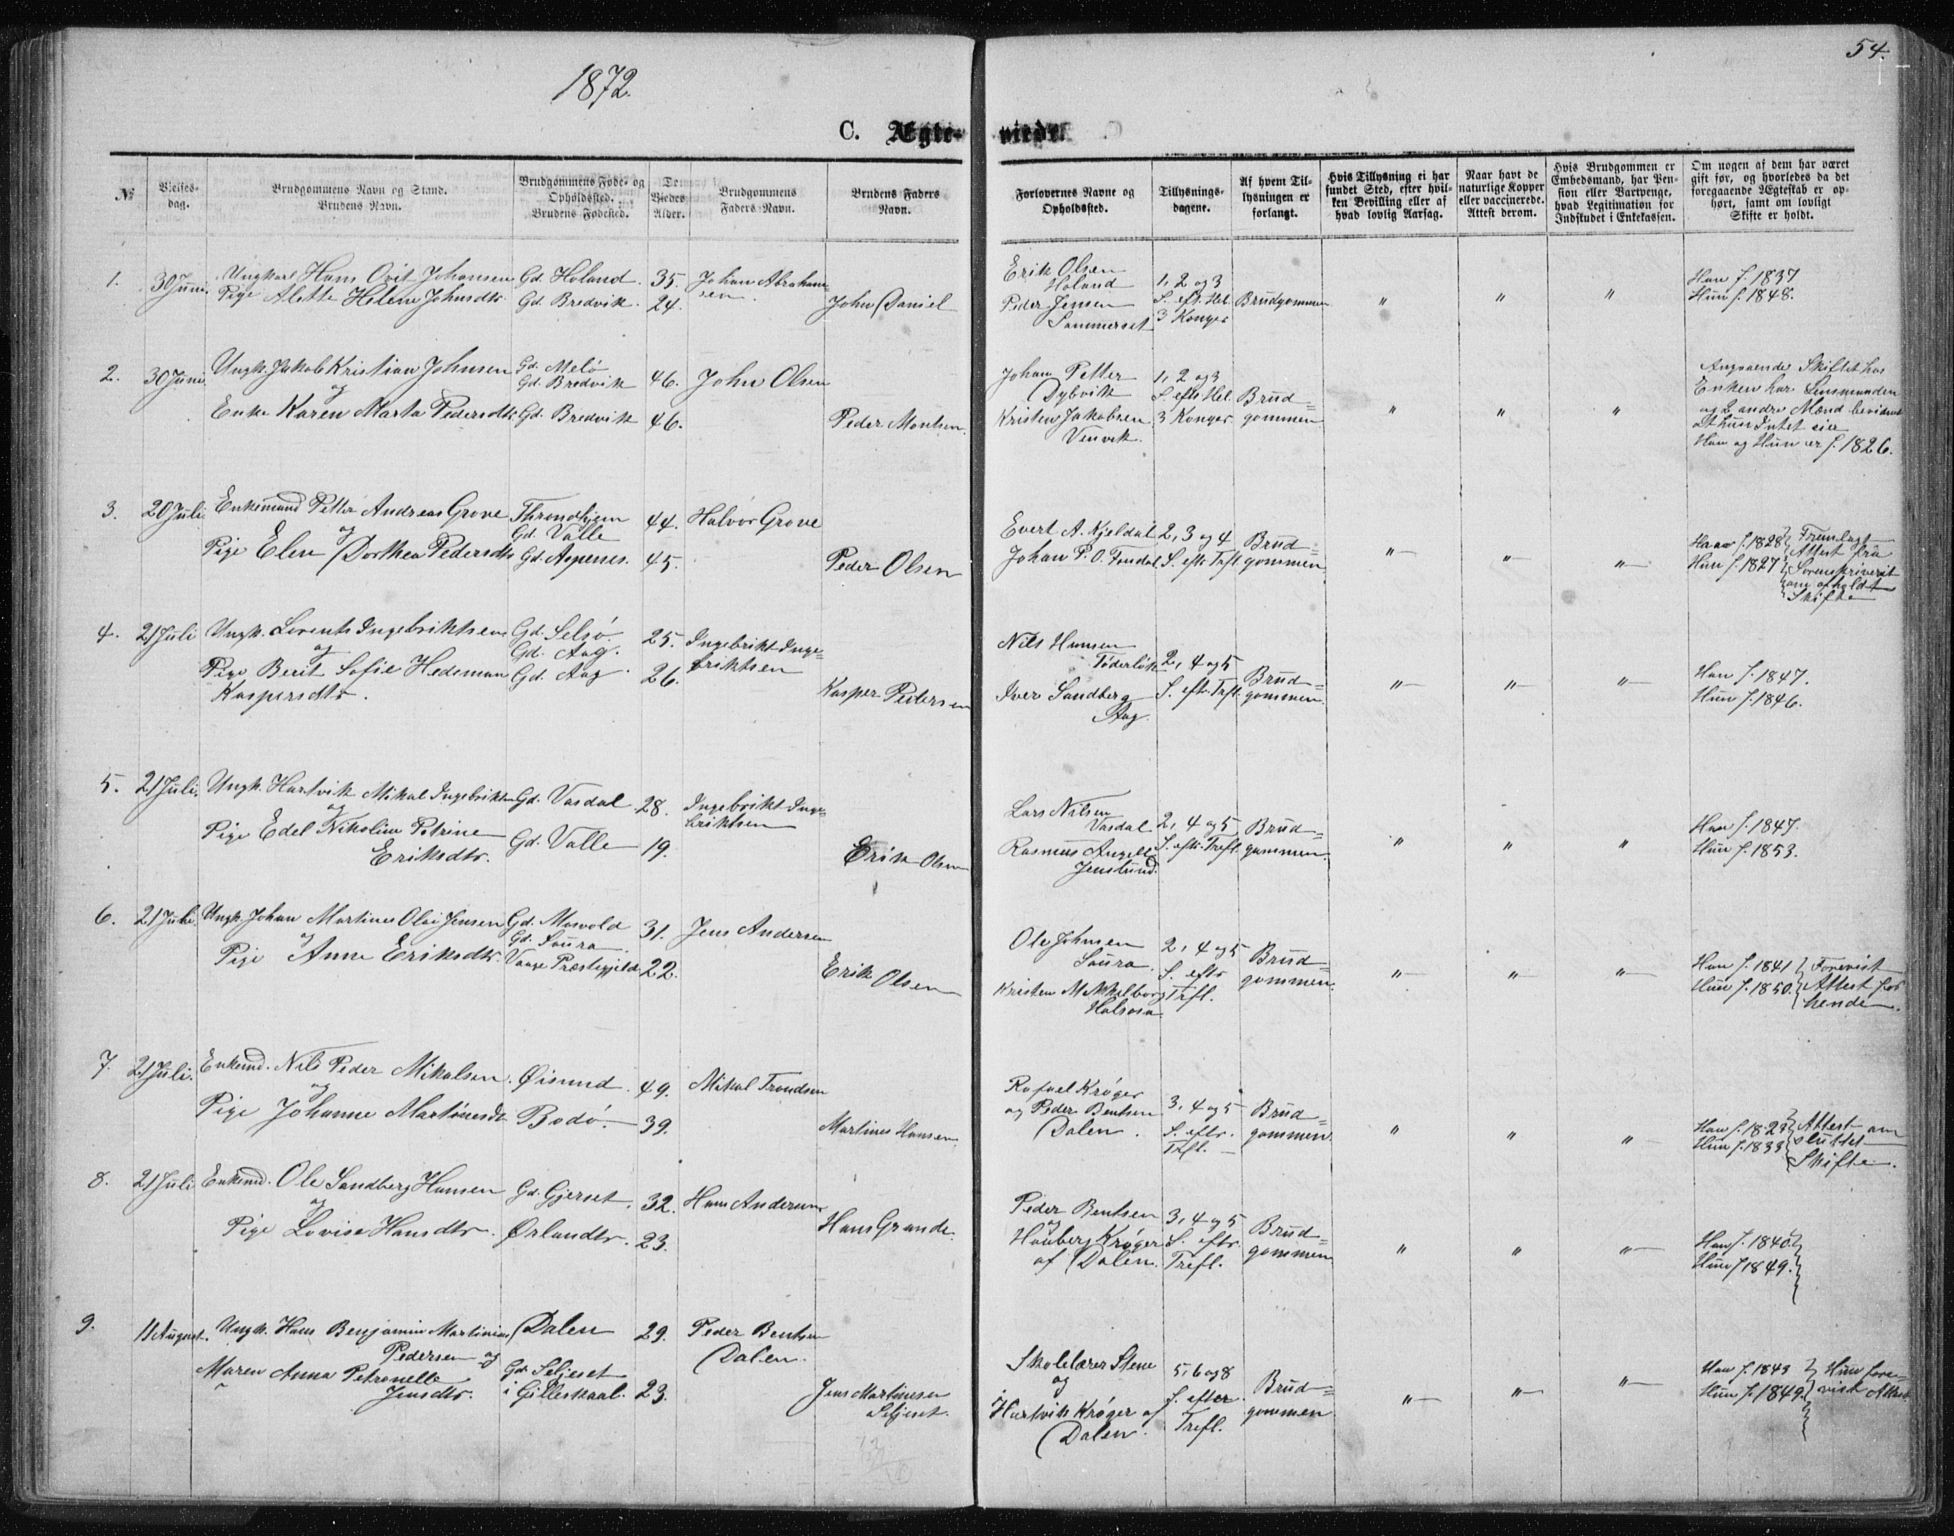 54.
1872.
C. Ægte- viede.
№
Vielses-
dag.
Brudgommens Navn og Stand.
Brudens Navn.
Brudgommens Føde- og
Opholdssted.
Brudens Fødested.
De
Viedes
Alder.
Brudgommens
Faders Navn.
Brudens Faders
Navn.
Forlovernes Navne og
Opholdssted.
Tillysnings-
dagene.
Af hvem Til-
lysningen er
forlangt.
Hvis Tillysning ei har
fundet Sted, efter hvil-
ken Bevilling eller af
hvad lovlig Aarsag.
Naar havt de
naturlige Kopper
eller vaccinerede.
Attest derom.
Hvis Brudgommen er
Embedsmand, har Pen-
sion eller Vartpenge,
hvad Legitimation for
Indskudet i Enkekassen.
Om nogen af dem har været
gift før, og hvorledes da det
foregaaende Ægteskab er op-
hørt, samt om lovligt
Skifte er holdt.
1. 30 Juni. Ungkarl Hans Ovit Johansen Gd. Holand 35. Johan Abraham-
sen
Pige Alette Helene Johnsdtr. Gd. Bredvik 24. John Daniel
Erik Olsen
Holand
Peder Jensen
Sommerset
1, 2 og 3
S. eft. Hel.
3 Konger
Brudgommen " " "
Han f. 1837
Hun f. 1848.
2. 30 Juni. Ungk. Jakob Kristian Johnsen Gd. Melø
Gd. Bredvik 46. John Olsen
og
Enke Karen Marta Pedersdtr. Gd. Bredvik 46. Peder Montsen.
Johan Petter
Dybvik
Kristen Jakobsen
Venvik.
1, 2 og 3
S. eftr Hel.
3 Konger
Brud=
gommen " " "
Angaaende Skiftet hos
Enken har Lensmanden
og 2 andre Mænd bevidnet
at hun Intet eier
Han og Hun er f. 1826.
3. 20 Juli Enkemand Petter Andreas Grove Throndhjem
Gd. Valle 44. Halvor Grove
og
Pige Elen Dorthea Pedersdtr Gd. Aspenes. 45. Peder Olsen
Evert A. Kjeldal
Johan P. O. Tondal
2, 3 og 4
S. eftr Trfl.
Brud=
gommen " " "
Han f. 1828
Hun f. 1827
Fremlagt
Attest fra
Sorenskriveriet
om afholdt
Skifte
4. 21 Juli Ungk. Lorents Ingebriktsen Gd. Selsø.
Gd. Aag. 25. Ingebrikt Inge=
briktsen
og
Pige Berit Sofie Hedeman Gd. Aag 26.
Kaspersdtr. Kasper Pedersen
Nils Hansen
Iver Sandberg
Aag.
2, 4 og 5
S. eftr. Trfl.
Brud=
gommen. " " "
Han f. 1847.
Hun f. 1846.
5. 21 Juli. Ungk. Hartvik Mikal Ingebriktsen Gd. Vasdal 28. Ingebrikt Inge-
briktsen
og
Pige Edel Nikoline Petrine Gd. Valle 19.
Eriksdtr. Erik Olsen
Lars Nilsen
Vasdal
Rasmus Angell
Jenslund.
2, 4 og 5
S. eftr. Trefl.
Brud=
gommen. " " "
Han f. 1847.
Hun f. 1853.
6. 21 Juli. Ungk. Johan Martines Olai Jensen Gd. Mosvold
Gd. Saura 31. Jens Andersen
og
Pige Anne Eriksdtr. Vaage Præstegjeld 22. Erik Olsen
Ole Johnsen
Saura
Kristen Mekkelborg
Halsosa
2, 4 og 5
S. eftr
Trfl.
Brud=
gommen. " " "
Han f. 1841
Hun f. 1850.
Forevist
Attest for
hende.
7. 21 Juli. Enkemd. Nils Peder Mikalsen. Øisund. 49. Mikal Trondsen
og
Pige Johanne Martinesdt. Bodø. 39. Martines Hansen.
Rafael Krøger
og Peder Bentsen
Dalen.
3, 4 og 5
S. eftr.
Trfl.
Brud=
gommen " " "
Han f. 1823
Hun f. 1833
Attest om
sluttet
Skifte.
8. 21 Juli Enkemd. Ole Sandberg Hansen Gd. Gjerset 32. Hans Andersen
og
Pige Lovise Hansdtr. Ørlandtr. 23. Hans Grande.
Peder Bentsen
og
Hauberg Krøger
af Dalen.
3, 4 og 5
S. eftr.
Trefl.
Brud=
gommen " " "
Han f. 1840
Hun f. 1849.
9. 11 August. Ungk. Hans Benjamin Martinius Dalen 29. Peder Bentsen
Pedersen og Dalen.
Maren Anna Petronelle Gd. Seljeset
Jensdtr. i Gilleskaal. 23. Jens Martinsen
Seljeset.
Skolelærer Stene
og
Hartvik Krøger af
Dalen.
5, 6 og 8
S. efter
Trefl.
Brud=
gommen " " "
Han f. 1843
Hun f. 1849.
Hun fore-
vist Attest